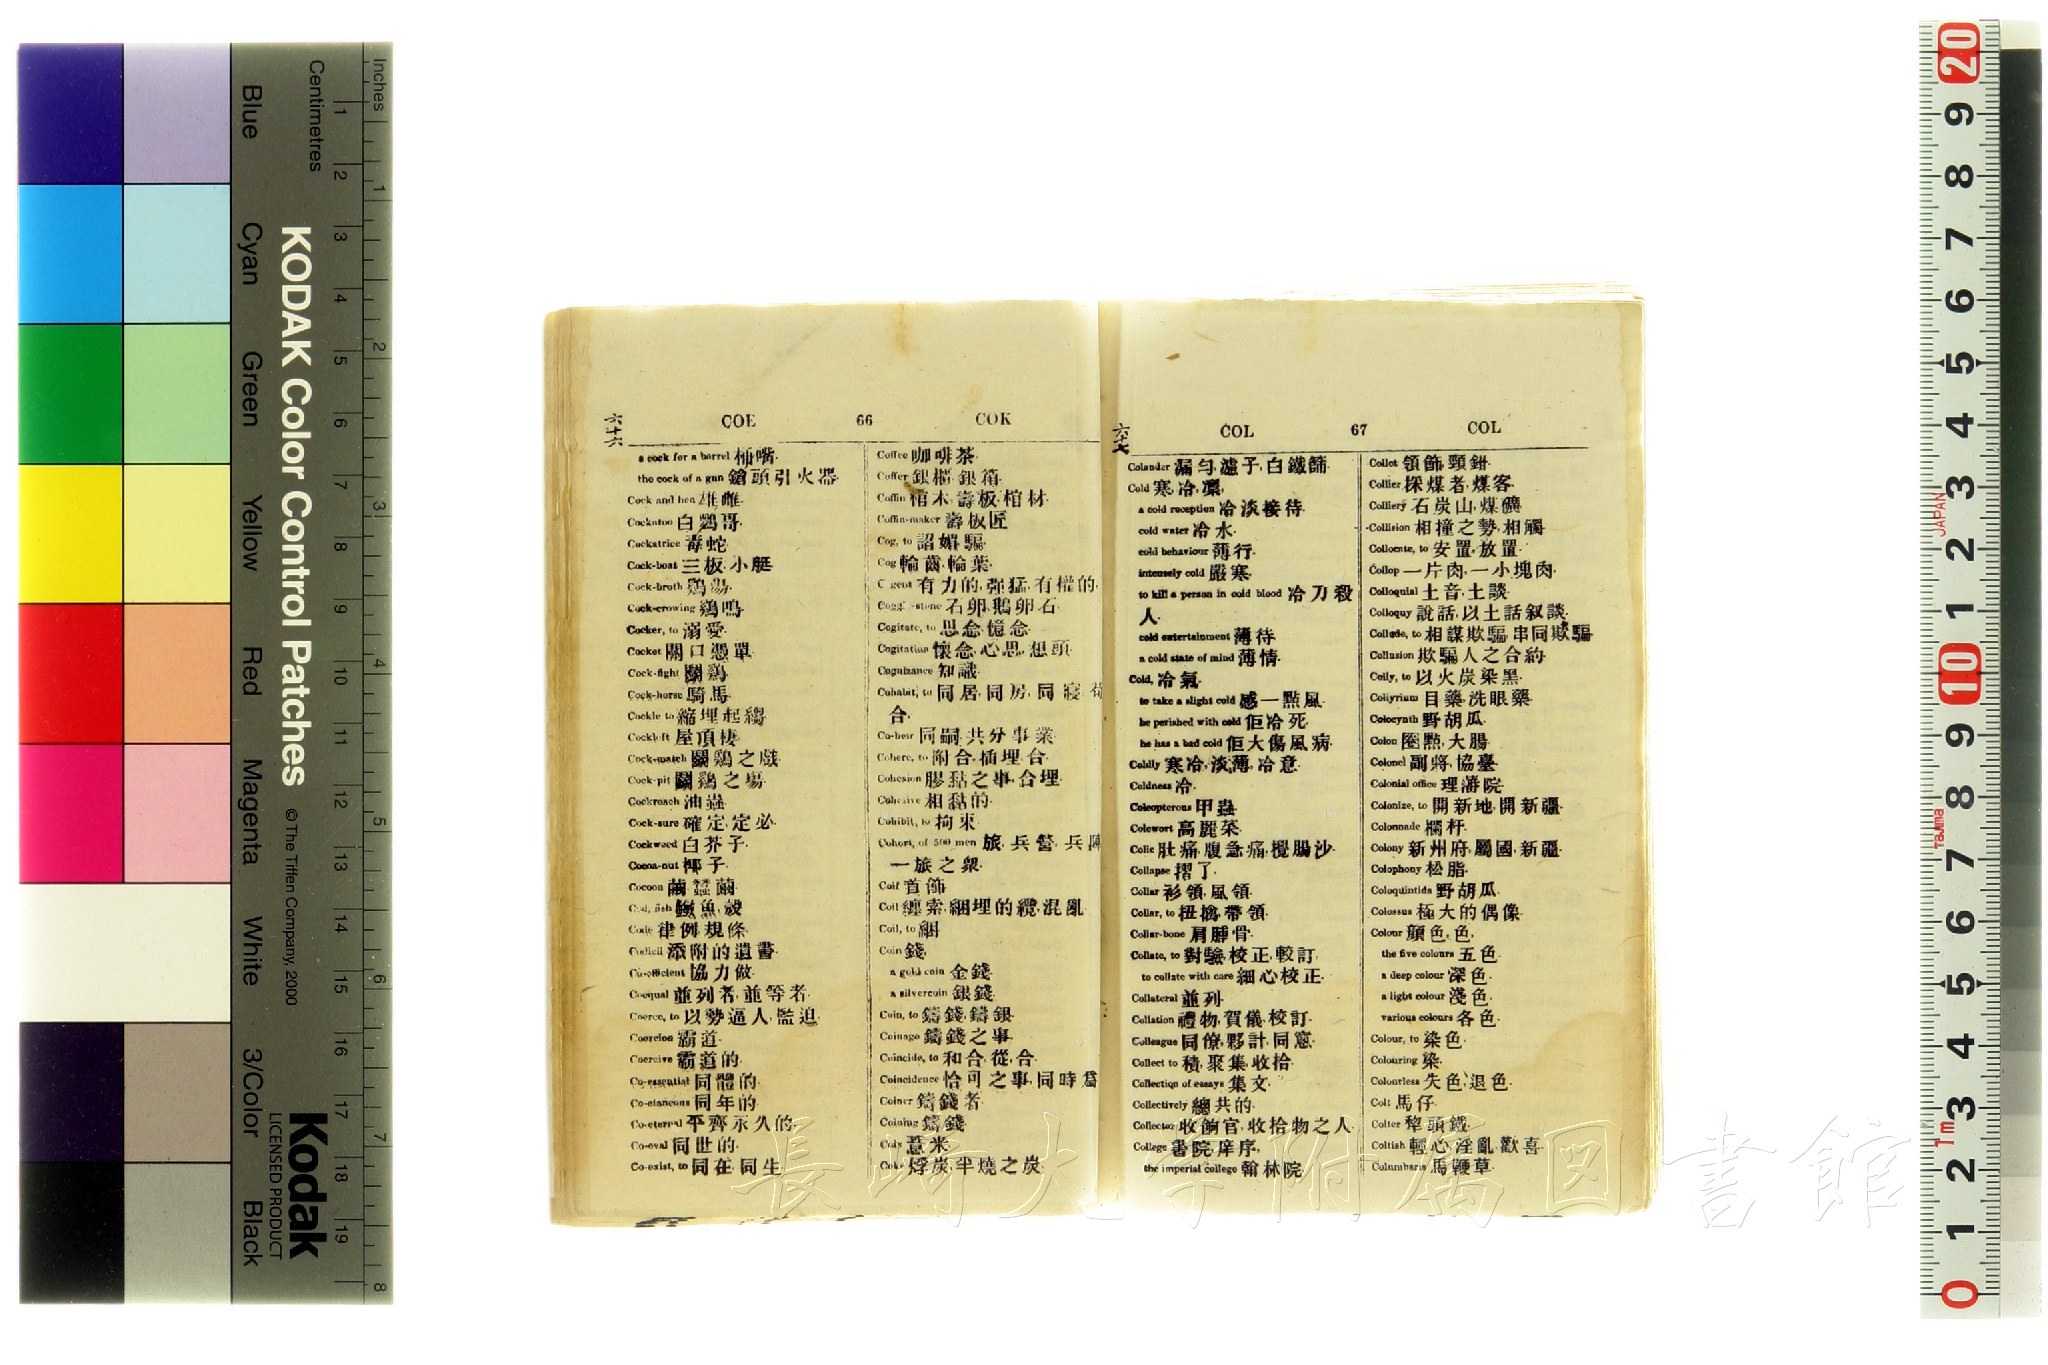 Inches
Centimetres
KODAK Color Control Patches
© The Tiffen Company, 2000
Kodak
LICENSED PRODUCT
Blue
Cyan
Green
Yellow
Red
Magenta
White
3/Color
Black
六十六
COE 66 COK
a cock for a barrel 桶嘴.
the cock of a gun 鎗頭引火器.
Cock and hen 雄雌.
Cockatoo 白鸚哥.
Cockatrice 毒蛇
Cock-boat 三板,小艇
Cock-broth 鷄湯.
Cock-crowing 鷄鳴.
Cocker, to 溺愛.
Cocket 關口憑單.
Cock-fight 鬭鷄
Cock-horse 騎馬.
Cockle to 縮埋起縐
Cockloft 屋頂樓.
Cock-match 鬭鷄之戲.
Cock-pit 鬭鷄之場.
Cockroach 油蟲.
Cock-sure 確定,定必.
Cockweed 白芥子.
Cocoa-nut 椰子.
Cocoon 繭,蠶繭.
Code 律例,規條.
Codicil 添附的遺書.
Co-efficient 協力做.
Coequal 並列者,並等者.
Coerce, to 以勢逼人,監迫.
Coercion 霸道.
Coercive 霸道的.
Co-essential 同體的.
Co-etaneous 同年的.
Co-eternal 平齊永久的.
Co-eval 同世的.
Co-exist, to 同在,同生.
Coffee 咖啡茶.
Coffer 銀櫃,銀箱.
Coffin 棺木,壽板,棺材.
Coffin-maker 壽板匠
Cog, to 諂媚,騙.
Cog 輪齒,輪葉.
有力的,強猛,有權的.
石卵,鵝卵石.
Cogitate, to 思念,憶念.
Cogitation 懷念,心思,想頭.
Cognizance 知識.
Cohabit, to 同居,同房,同寢,苟
合.
Co-heir 同嗣,共分事業.
Cohere, to 附合,插埋合.
Cohesion 膠黏之事,合埋.
Cohesive 相黏的.
Cohibit, to 拘束.
Cohort, of 500 men 旅,兵營,兵
一旅之衆.
Coif 首飾
Coil 纏索,綑埋的纜,混亂.
Coil, to 綑
Coin 錢.
a gold coin 金錢.
a silver coin 銀錢.
Coin, to 鑄錢,鑄銀.
Coinage 鑄錢之事.
Coincide, to 和合,從,合.
Coincidence 恰可之事,同時
Coiner 鑄錢者.
Coining 鑄錢.
Coix 薏米.
Coke 烰炭,半燒之炭.
六十七
COL 67 COL
Colander 漏勻,濾子,白鐵篩.
Cold 寒,冷,凜.
a cold reception 冷淡接待.
cold water 冷水.
cold behaviour 薄行.
intensely cold 嚴寒.
to kill a person in cold blood 冷刀殺
人.
cold entertainment 薄待.
a cold state of mind 薄情.
Cold, 冷氣.
to take a slight cold 感一點風.
he perished with cold 佢冷死.
he has a bad cold 佢大傷風病.
Coldly 寒冷,淡薄,冷意.
Coldness 冷.
Coleopterous 甲蟲
Colewort 高麗菜.
Colic 肚痛,腹急痛,攪腸沙.
Collapse 摺了.
Collar 衫領,風領.
Collar, to 扭擒,帶領.
Collar-bone 肩胛骨.
Collate, to 對驗,校正,較訂.
to collate with care 細心校正.
Collateral 並列.
Collation 禮物,賀儀,校訂.
Colleague 同僚,夥計,同窓.
Collect to 積,聚集,收拾.
Collection of essays 集文.
Collectively 總共的.
Collector 收餉官,收拾物之人.
College 書院,庠序.
the imperial college 翰林院.
Collet 領飾,頸鉗.
Collier 採煤者,煤客.
Colliery 石炭山,煤礦.
Collision 相撞之勢,相觸
Collocate, to 安置,放置.
Collop 一片肉,一小塊肉.
Colloquial 土音,土談.
Colloquy 說話,以土話叙談.
Collude, to 相謀欺騙,串同欺騙
Collusion 欺騙人之合約.
Colly, to 以火炭染黑.
Collyrium 目藥,洗眼藥.
Colocynth 野胡瓜.
Colon 圈點,大腸.
Colonel 副將,協臺.
Colonial office 理瀋院.
Colonize, to 開新地,開新疆.
Colonnade 欄杆.
Colony 新州府,屬國,新疆.
Colophony 松脂.
Coloquintida 野胡瓜.
Colossus 極大的偶像.
Colour 顏色,色,
the five colours 五色.
a deep colour 深色.
a light colour 淺色.
various colours 各色.
Colour, to 染色.
Colouring 染.
Colourless 失色,退色.
Colt 馬仔.
Colter 犂頭鐵.
Coltish 輕心,淫亂,歡喜.
Columbaria 馬鞭草.
長崎大学附属図書館
JAPAN
Tajima
1m